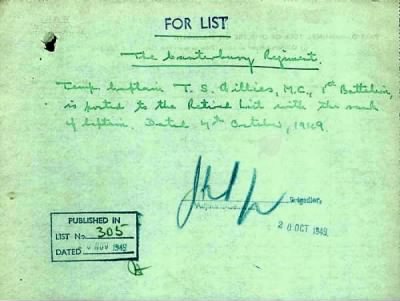 FOR LIST
The Canterbury Regiment.
Temp Captain T. S. Gillies, M.C., 1st Battalion,
is posted to the Retired List with the rank
of Captain. Dated 4th October, 1949.
Brigadier,
20 OCT 1949.
PUBLISHED IN
LIST No. 305
DATED NOV 1949